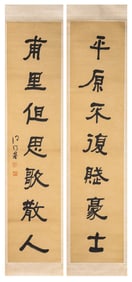 平原不復賦豪士
甫里但思歌散人